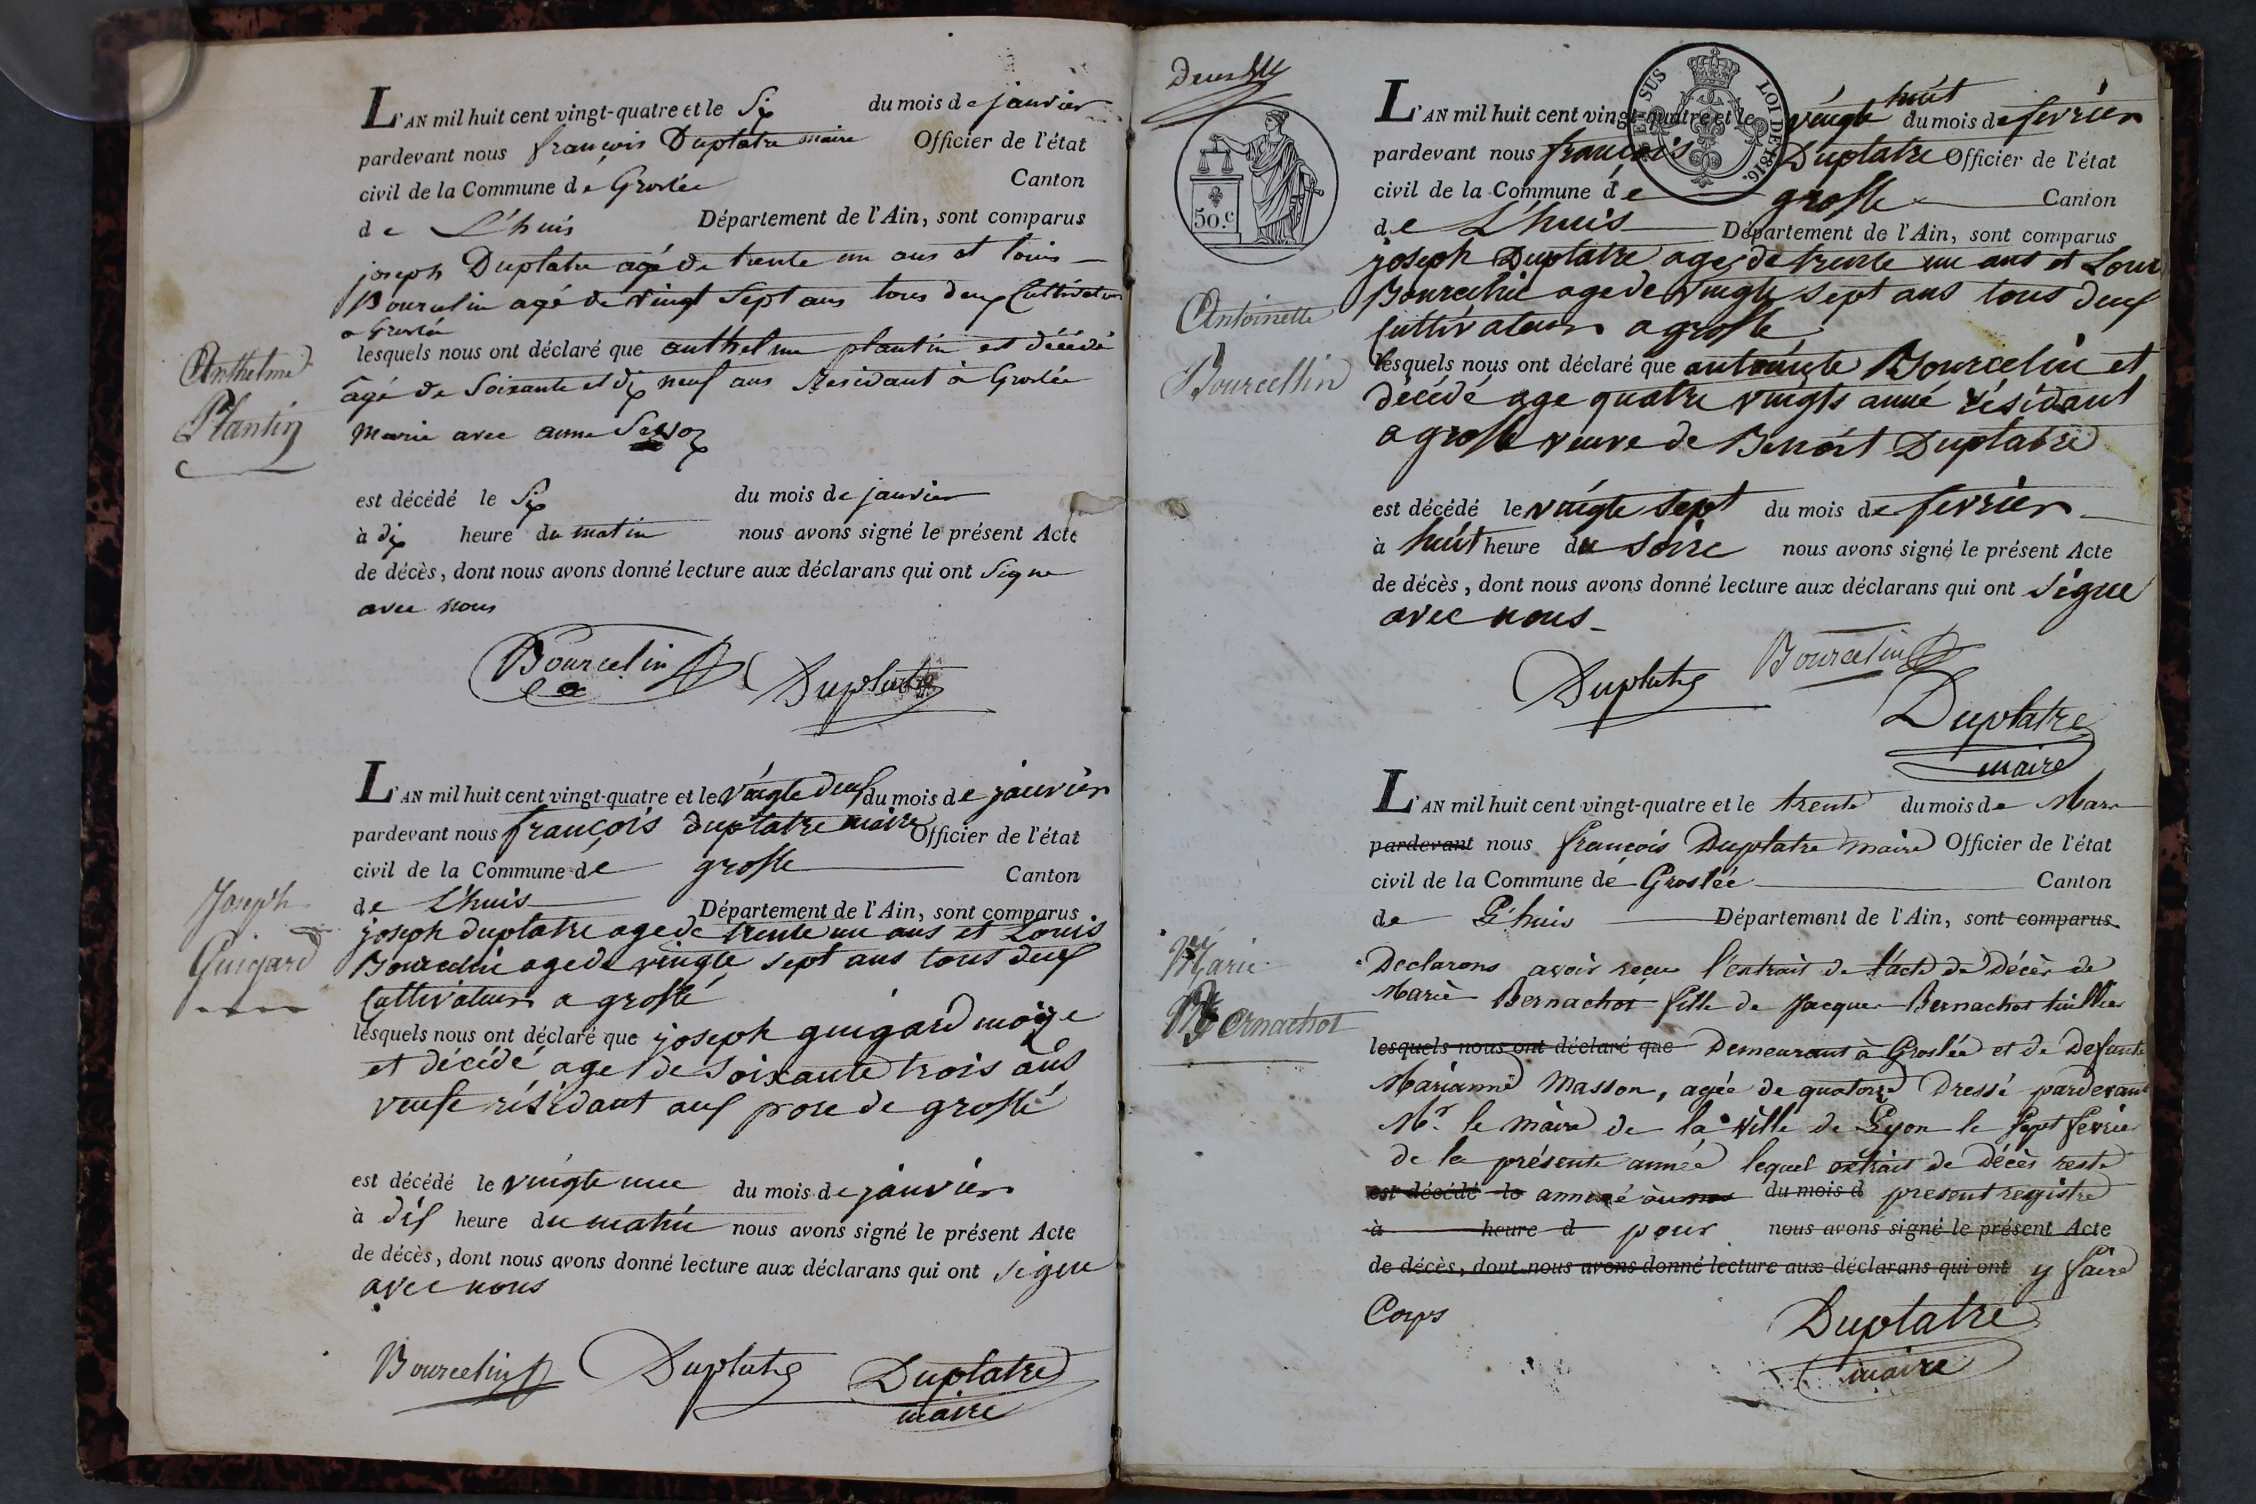 L'AN mil huit cent vingt-quatre et le Six du mois de janvier
pardevant nous françois Duplatre maire Officier de l'état
civil de la Commune de Groslée Canton
de L'huis Département de l'Ain, sont comparus
joseph Duplatre agé de trente un ans et louis
Bourcelin agé de vingt Sept ans tous deux Cultivateurs
a Groslée
lesquels nous ont déclaré que anthelme plantin est décédé
âgé de Soixante et dix neuf ans Residant à Groslée
Marié avec anne
Anthelme
Plantin
est décédé le Six du mois de janvier
à dix heure du matin nous avons signé le présent Acte
de décès, dont nous avons donné lecture aux déclarans qui ont signe
avec nous
Bourcelin Duplatre
L'AN mil huit cent vingt-quatre et le vingte deux du mois de janvier
pardevant nous françois duplatre maire Officier de l'état
civil de la Commune de grosle Canton
de L'huis Département de l'Ain, sont comparus
joseph duplatre age de trente un ans et Louis
Bourcelin age de vingte sept ans tous deux
Cultivateurs a groslé
Joseph
Guigard
lesquels nous ont déclaré que joseph guigard moize
et décédé age de soixante trois ans
veufe résidant aux pore de groslé
est décédé le vingte une du mois de janvier
à dix heure du matin nous avons signé le présent Acte
de décès, dont nous avons donné lecture aux déclarans qui ont signe
avec nous
Bourcelin Duplatre Duplatre
maire
SUS LOI DE 1816.
50.c
L'AN mil huit cent vingt-quatre et le vingte huit du mois de fevrier
pardevant nous françois Duplatre Officier de l'état
civil de la Commune de grosle Canton
de L'huis Département de l'Ain, sont comparus
joseph Duplatre age de trente un ans et Louis
Bourcelin age de vingte sept ans tous deux
Cultivateurs a grosle
Antoinette
Bourcellin
lesquels nous ont déclaré que antoinete Bourcelin et
décédé age quatre vingts anné résidant
a grosle veuve de Benoit Duplatre
est décédé le vingte sept du mois de fevrier
à huit heure du soire nous avons signé le présent Acte
de décès, dont nous avons donné lecture aux déclarans qui ont signe
avec nous
Duplatre Bourcelin
Duplatre
maire
L'AN mil huit cent vingt-quatre et le trente du mois de Mars
pardevant nous françois Duplatre maire Officier de l'état
civil de la Commune de Groslée Canton
de L'huis Département de l'Ain, sont comparus
Declarons avoir reçu l'extrait de l'acte de Décès de
Marie Bernachot fille de Jacques Bernachot tuillier
Marie
Bernachot
lesquels nous ont déclaré que Demeurant à Groslée et de Defunte
Marianne Masson, agée de quatorze Dressé pardevant
Mr. le Maire de la Ville de Lyon le Sept fevrier
de la présente année lequel extrait de Décès reste
est décédé le annexé au du mois d present registre
à heure d pour nous avons signé le présent Acte
de décès, dont nous avons donné lecture aux déclarans qui ont y faire
Corps
Duplatre
maire